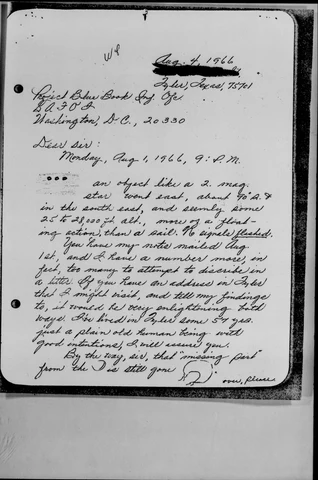 Aug. 4, 1966
Tyler, Texas, 75701
Project Blue Book Inf. Ofc.
Washington, D.C., 20330
Dear sir:
Monday, Aug 1, 1966, 9: P.M.
an object like a 2. mag.
star went east, about 40° A. &
in the south east, and seemly, some
25 to 28,000 ft alt., more of a float-
ing action, than a sail. No signals flashed.
You have my notes mailed Aug
1st, and I have a number more, in
fact, too many to attempt to discribe in
a letter. If you have an address in Tyler
that I might visit, and tell my findings
to, it would be very enlightening both
ways. I've lived in Tyler some 57 yrs.
just a plain old human being with
good intentions, I will assure you.
By the way, sir, that "missing part"
from the D is still gone
over, please.